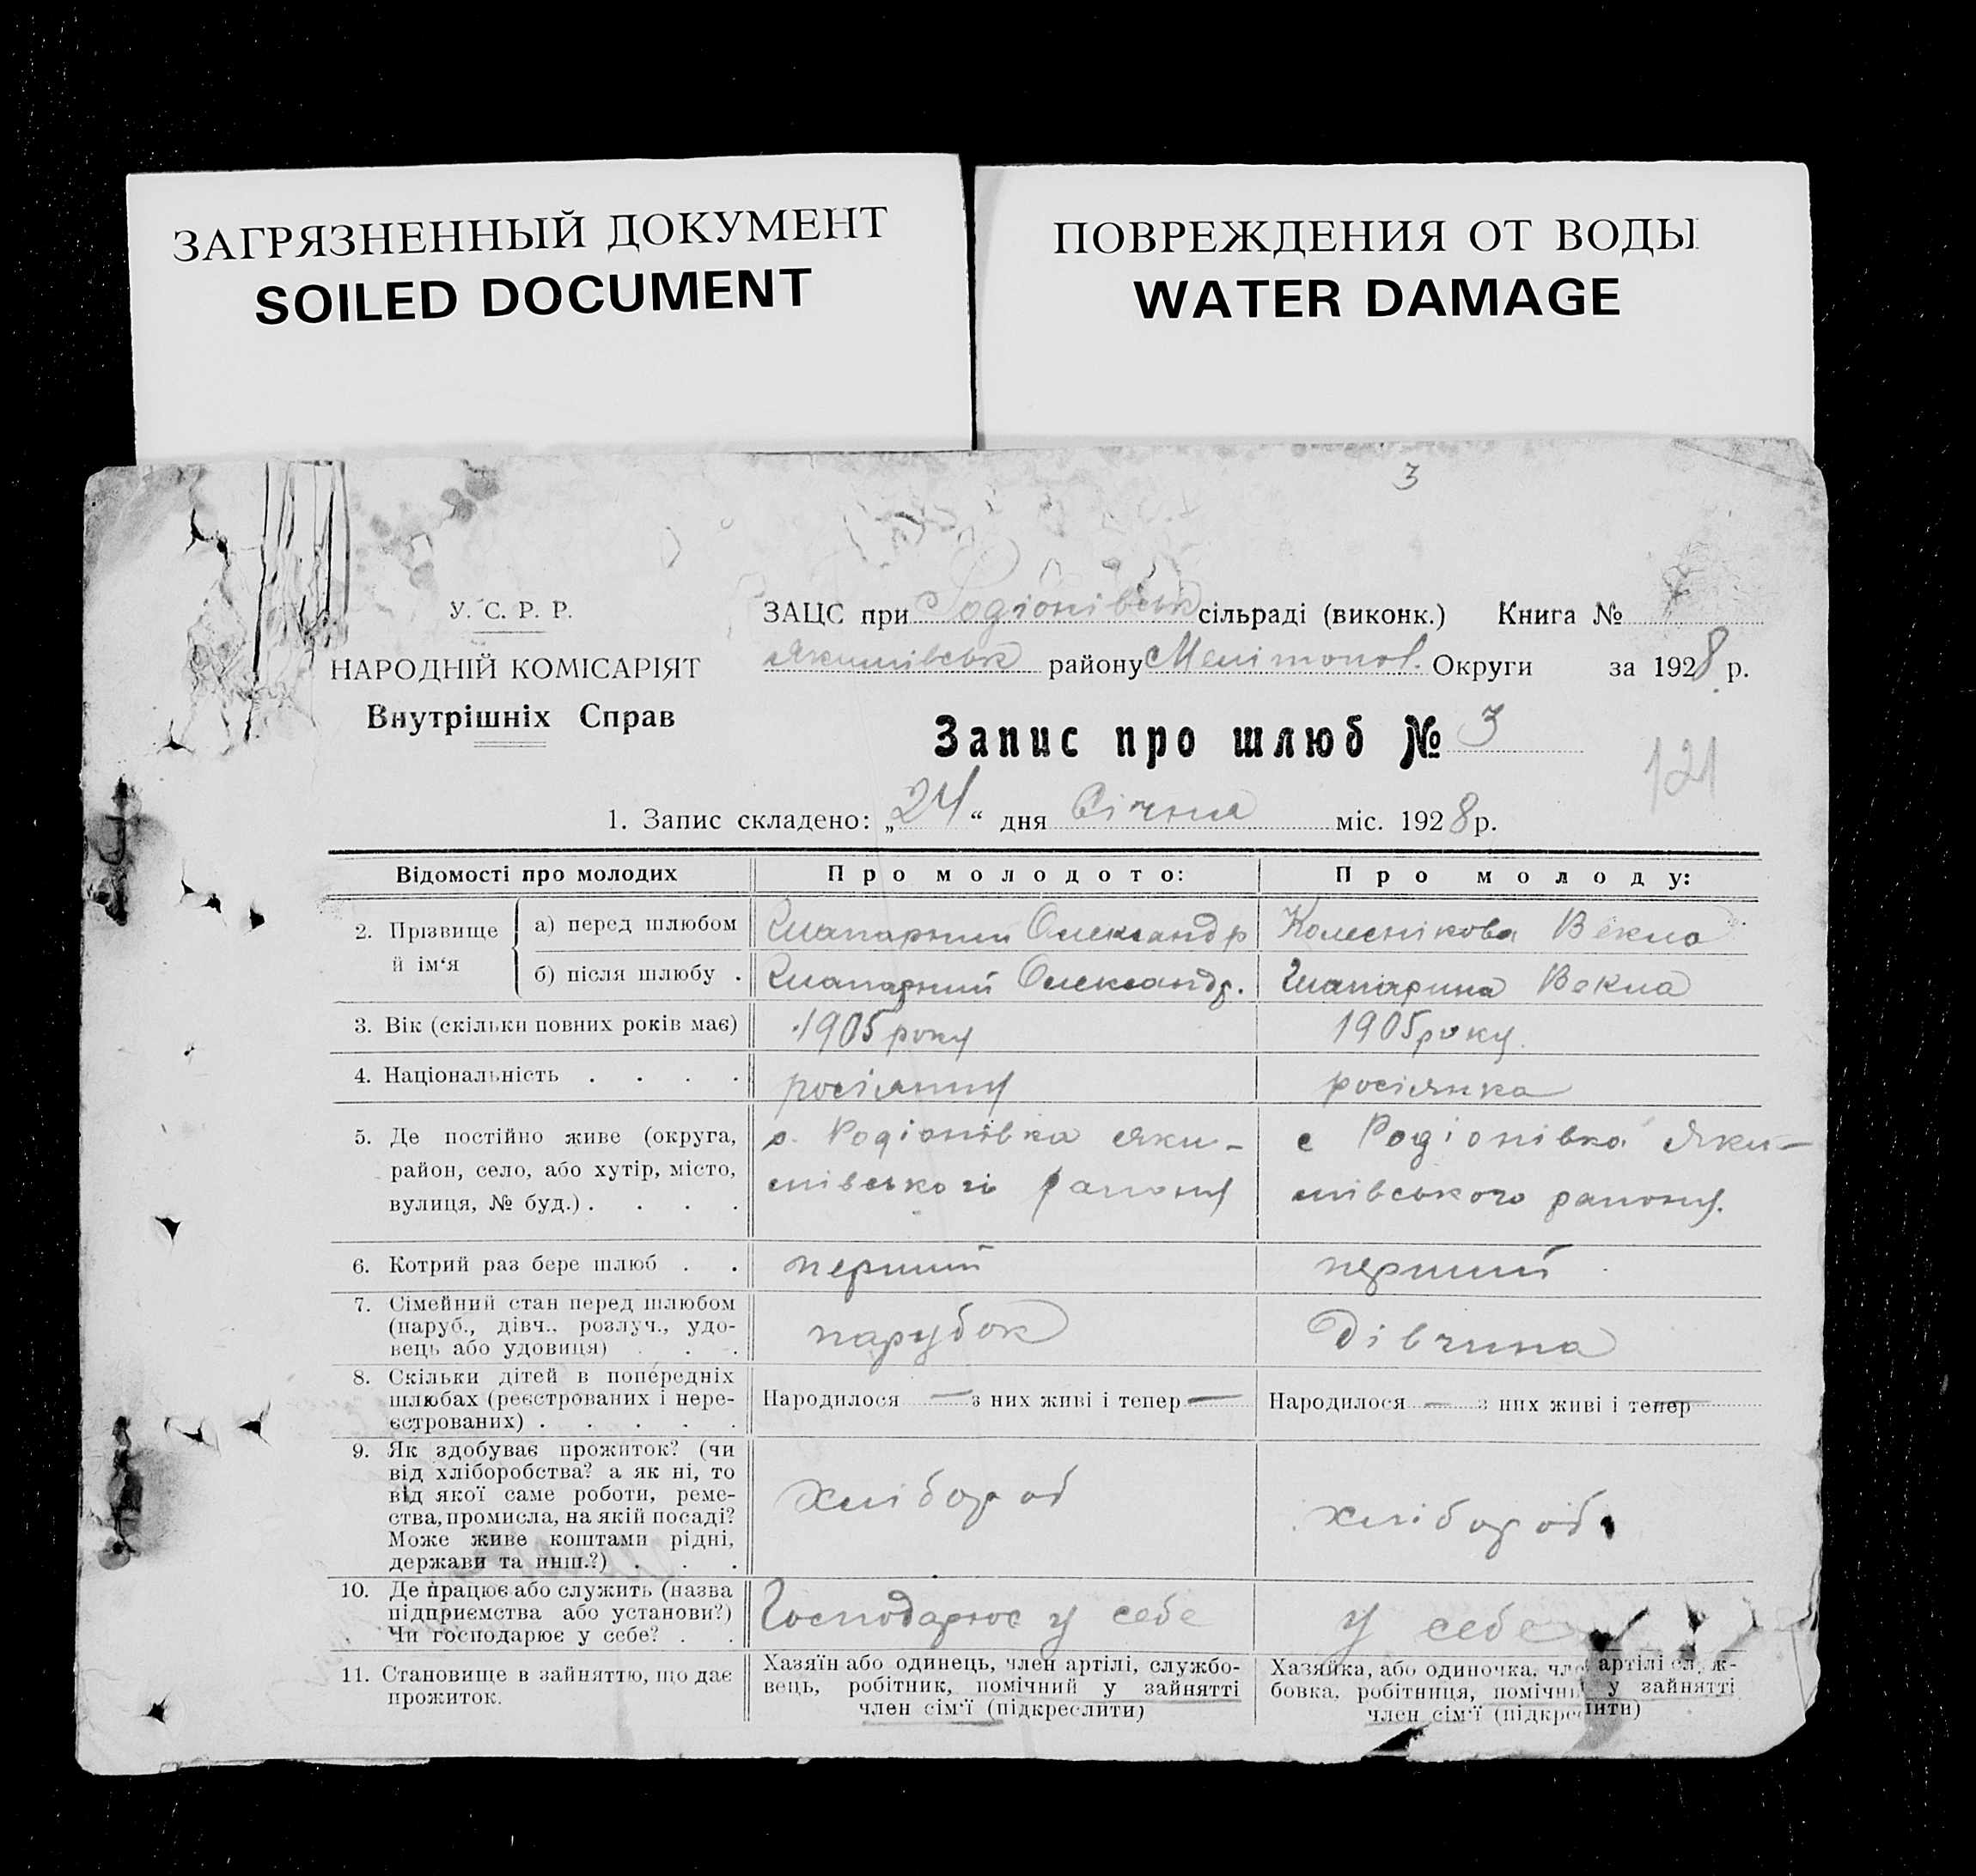 ЗАГРЯЗНЕННЫЙ ДОКУМЕНТ
SOILED DOCUMENT
ПОВРЕЖДЕНИЯ ОТ ВОДЫ
WATER DAMAGE
3
У. С. Р. Р.
НАРОДНІЙ КОМІСАРІЯТ
Внутрішніх Справ
ЗАЦС при Родіонівськ сільраді (виконк.) Книга №
Якимівськ району Меліпопол. Округи за 1928 р.
Запис про шлюб № 3
121
1. Запис складено: „24“ дня Січня міс. 1928 р.
Відомості про молодих
Про молодого:
Про молоду:
2. Прізвище й ім‘я
а) перед шлюбом
Олександр
Колеснікова Векла
б) після шлюбу .
Олександр.
Векла
3. Вік (скільки повних років має)
1905 року
1905 року.
4. Національність . . . .
росіянин
росіянка
5. Де постійно живе (округа,
район, село, або хутір, місто,
вулиця, № буд.) . . . .
с. Родіонівка Яки-
мівського району
с Родіонівка Яки-
мівського району.
6. Котрий раз бере шлюб . .
перший
перший
7. Сімейний стан перед шлюбом
(паруб., дівч., розлуч., удо-
вець або удовиця) . . .
парубок
Дівчина
8. Скільки дітей в попередніх
шлюбах (реєстрованих і нере-
єстрованих) . . . . .
Народилося — з них живі і тепер —
Народилося — з них живі і тепер —
9. Як здобуває прожиток? (чи
від хліборобства? а як ні, то
від якої саме роботи, реме-
ства, промисла, на якій посаді?
Може живе коштами рідні,
держави та инш.?) . . .
хлібороб
хлібороб
10. Де працює або служить (назва
підприємства або установи?)
Чи господарює у себе? . .
Господарює у себе
у себе
11. Становище в зайняттю, що дає
прожиток.
Хазяїн або одинець, член артілі, службо-
вець, робітник, помічний у зайнятті
член сім‘ї (підкреслити)
Хазяйка, або одиночка, член артілі служ-
бовка, робітниця, помічний у зайнятті
член сім‘ї (підкреслити)